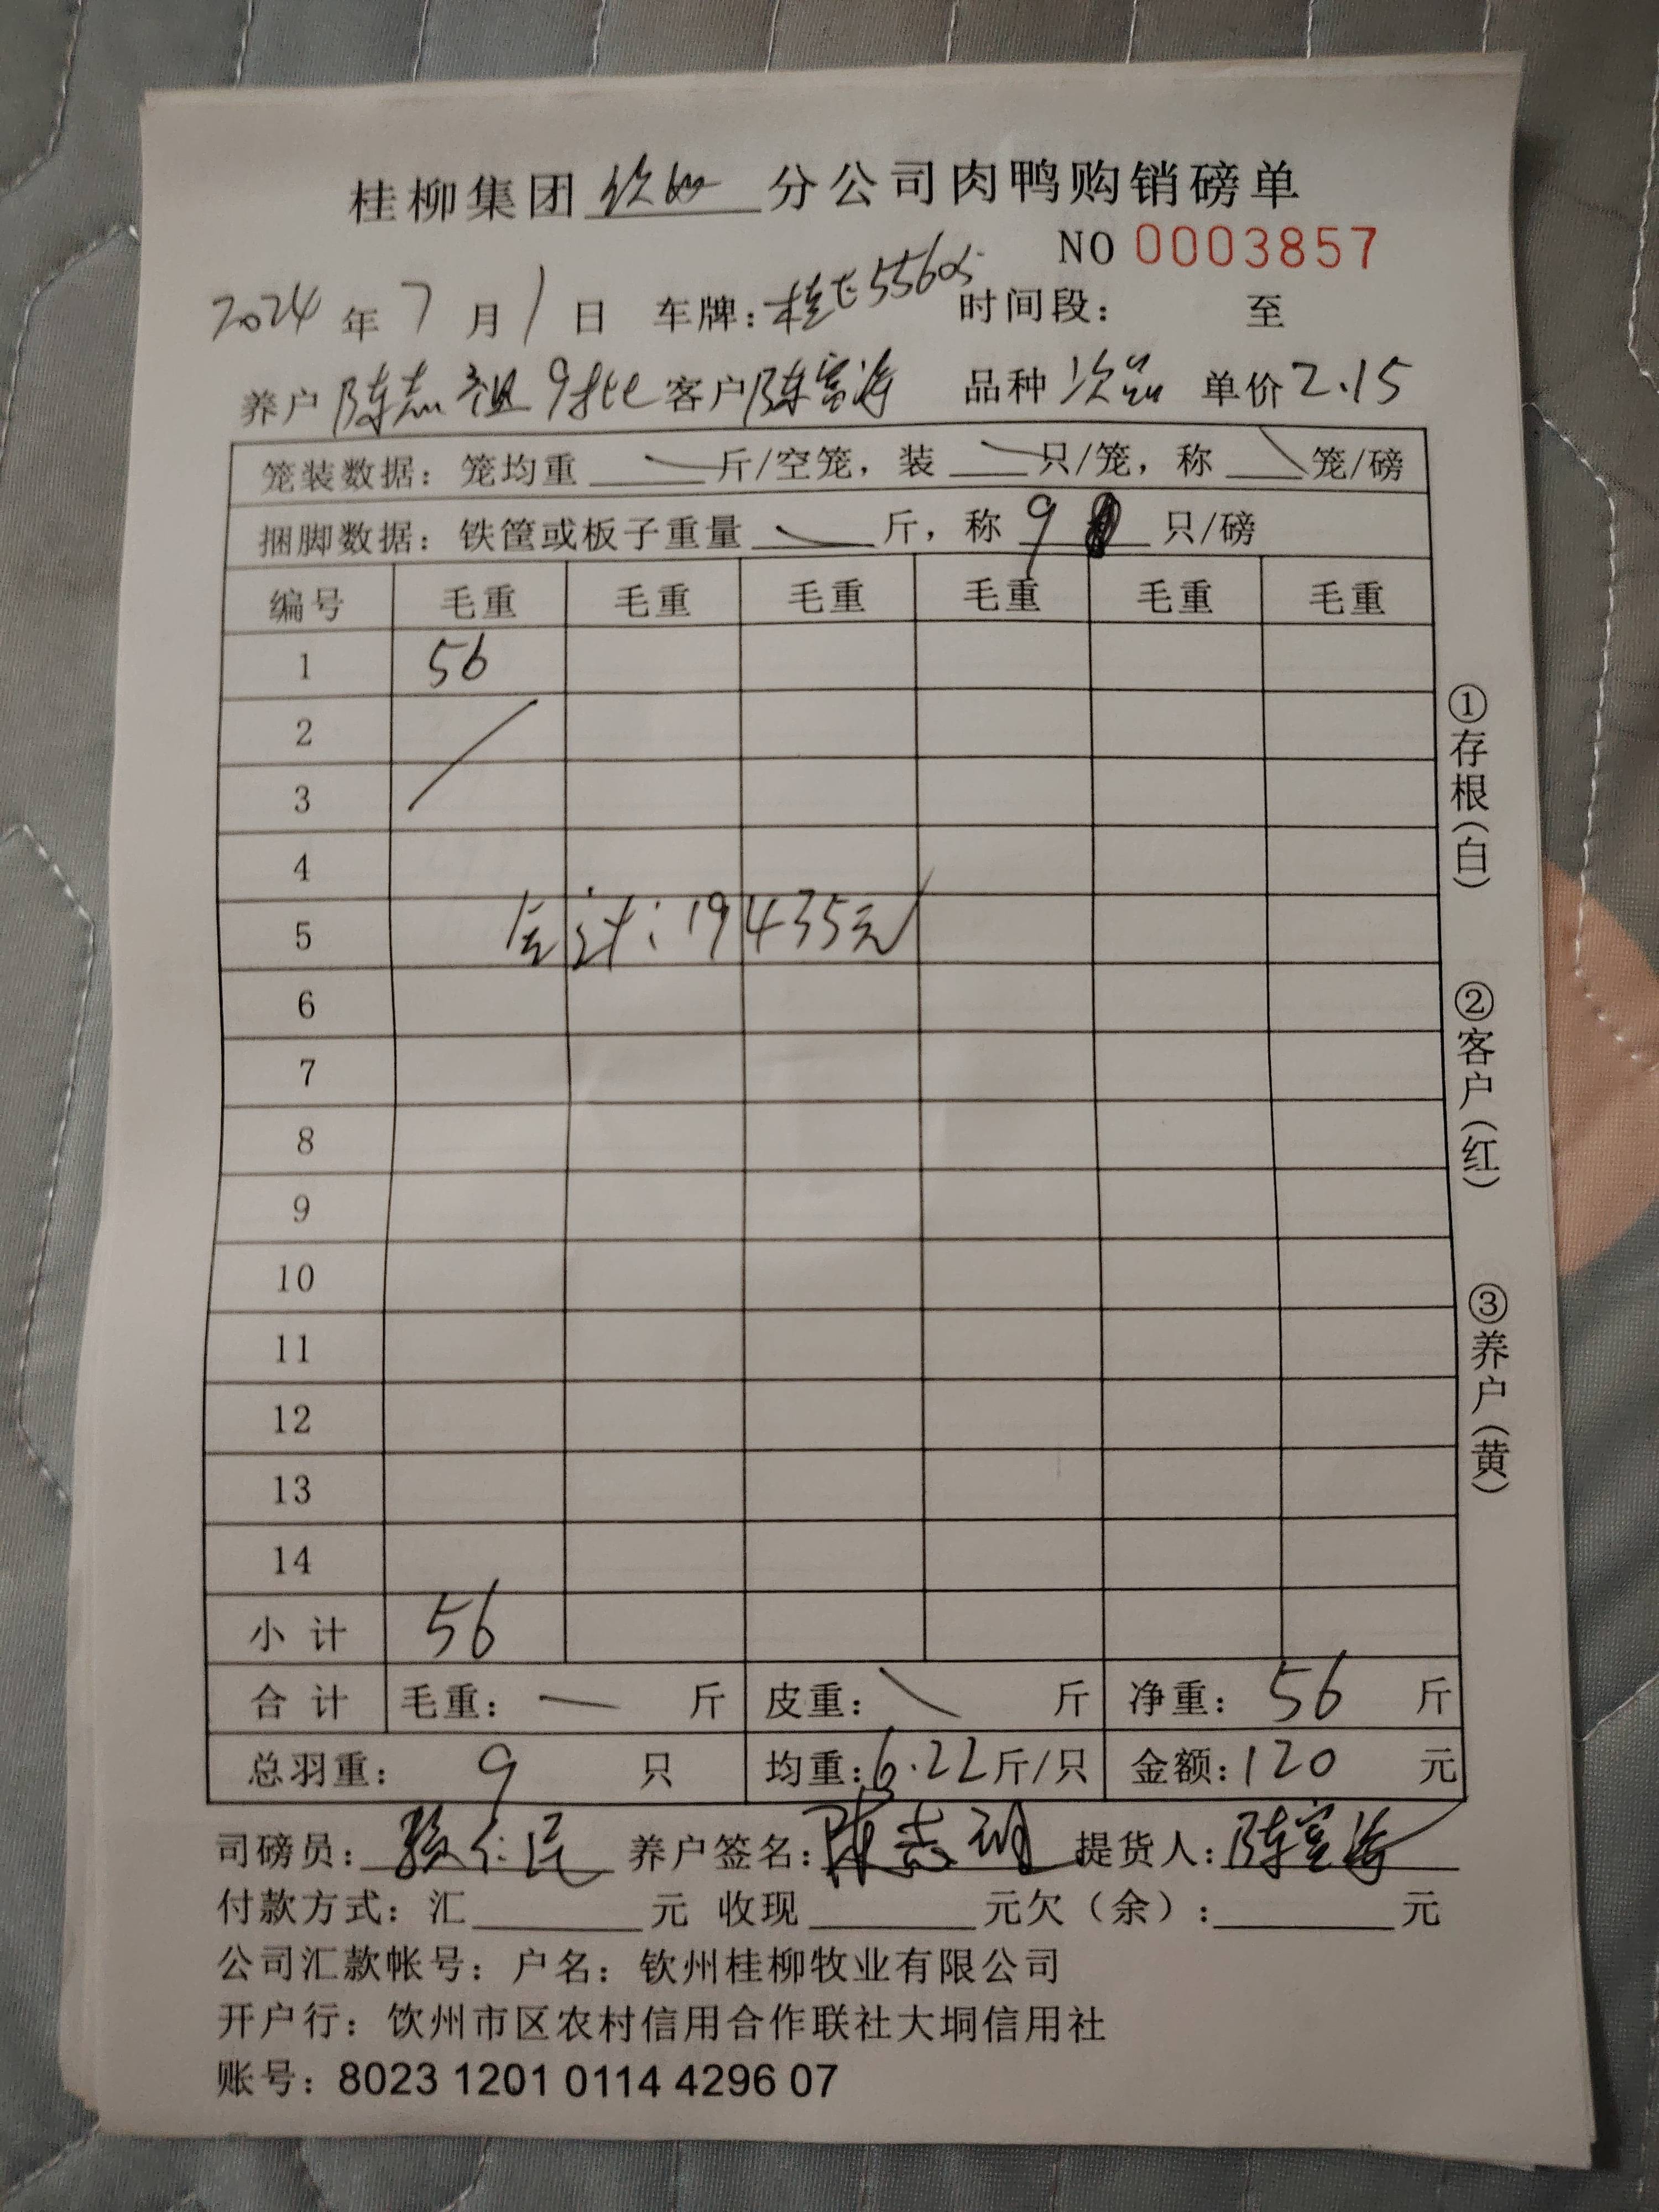 桂柳集团钦州分公司肉鸭购销磅单
NO 0003857
2024年7月1日 车牌:桂E55605 时间段: 至
养户陈志祖9批 客户陈富海 品种次品 单价2.15
笼装数据: 笼均重 斤/空笼, 装 只/笼, 称 笼/磅
捆脚数据: 铁筐或板子重量 斤, 称 9 只/磅
编号 毛重 毛重 毛重 毛重 毛重 毛重
1 56
2
3
4
5 合计:19435元
6
7
8
9
10
11
12
13
14
小计 56
合计 毛重: 一 斤 皮重: 斤 净重: 56 斤
总羽重: 9 只 均重:6.22斤/只 金额:120 元
司磅员: 仁民 养户签名:陈志 提货人:陈富海
付款方式: 汇 元 收现 元欠(余): 元
公司汇款帐号: 户名: 钦州桂柳牧业有限公司
开户行: 饮州市区农村信用合作联社大垌信用社
账号: 8023 1201 0114 4296 07
①存根(白)
②客户(红)
③养户(黄)